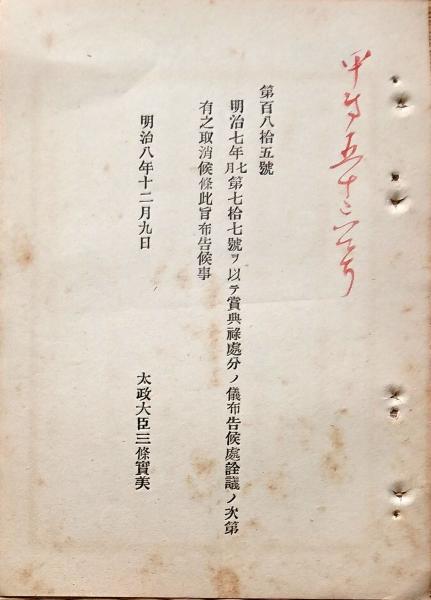 第百八拾五號
明治七年七月第七拾七號ヲ以テ賞典祿處分ノ儀布告候處詮議ノ次第
有之取消候條此旨布告候事
明治八年十二月九日
太政大臣三條實美